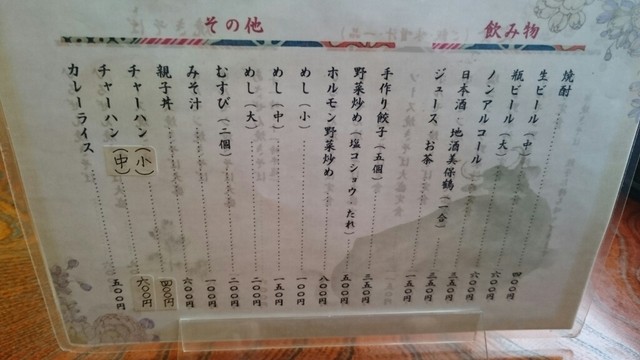 飲み物
焼酎
生ビール(中) 四〇〇円
瓶ビール(大) 六〇〇円
ノンアルコール
日本酒 地酒美保鶴(一合) 三五〇円
ジュース お茶 一五〇円
その他
手作り餃子(五個) 三五〇円
野菜炒め(塩コショウ たれ) 五〇〇円
ホルモン野菜炒め 八〇〇円
めし(小) 一〇〇円
めし(中) 一五〇円
めし(大) 二〇〇円
むすび(二個) 二〇〇円
みそ汁 一〇〇円
親子丼 六〇〇円
チャーハン(小) 四〇〇円
チャーハン(中) 六〇〇円
カレーライス 五〇〇円